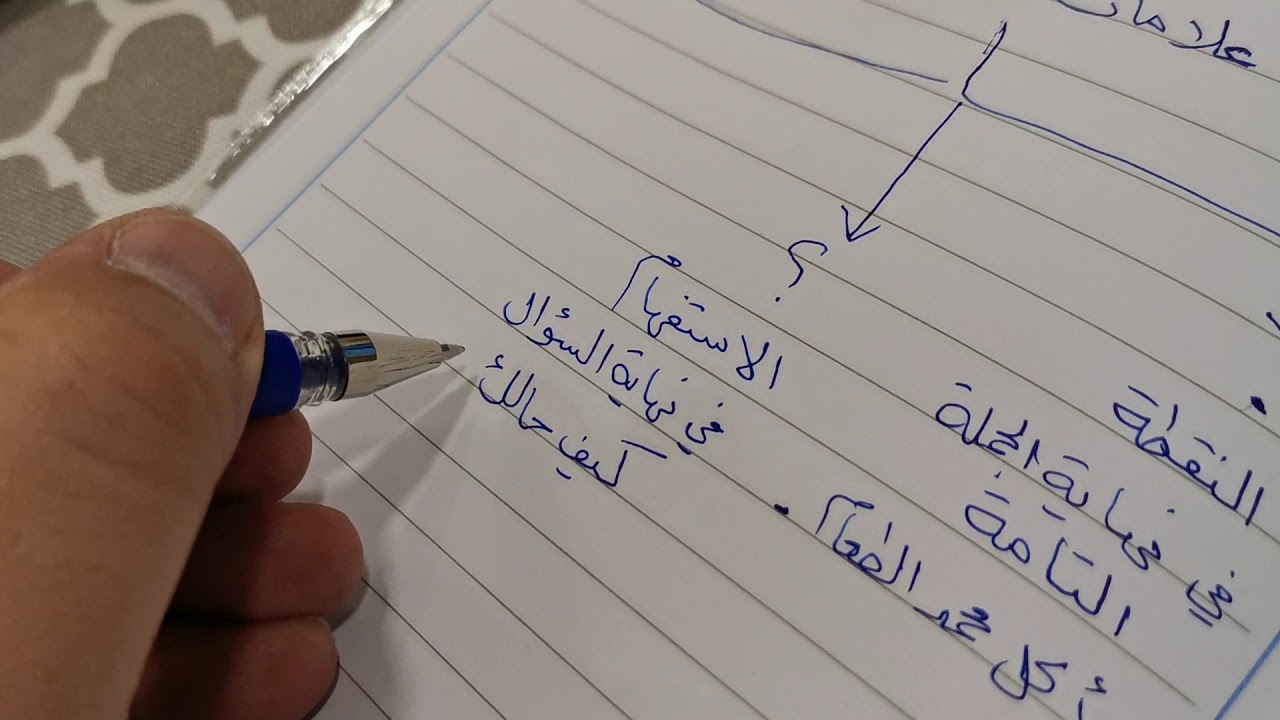 علامات
.
النقطة
في نهاية الجملة
التامة
أكل محمد الطعام.
؟
الاستفهام
في نهاية السؤال
كيف حالك